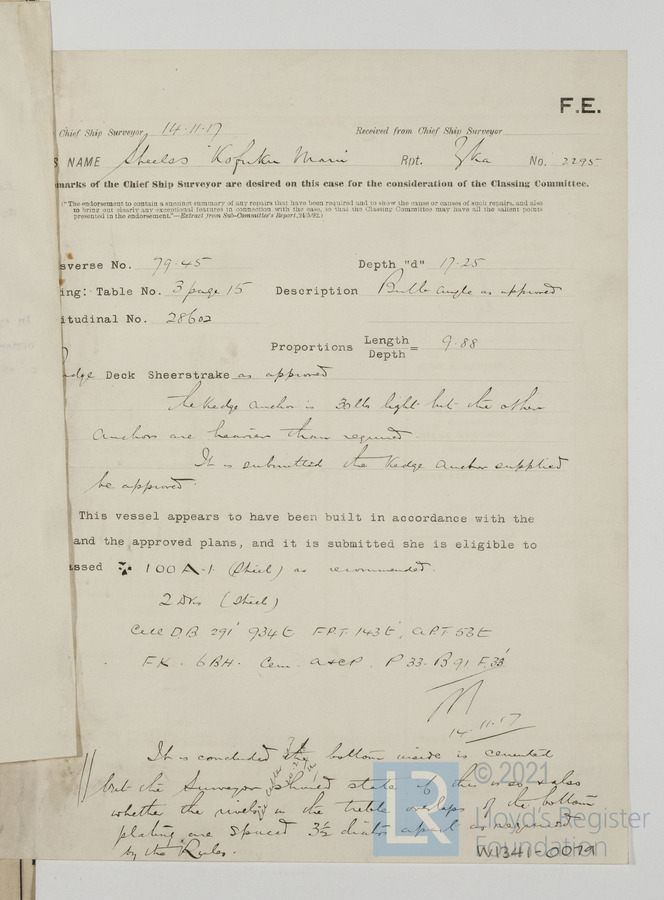 F.E.
Chief Ship Surveyor 14.11.17 Received from Chief Ship Surveyor
S NAME "Kofuku Maru Rpt. Yka No. 2295
marks of the Chief Ship Surveyor are desired on this case for the consideration of the Classing Committee.
("The endorsement to contain a succinct summary of any repairs that have been required and to show the cause or causes of such repairs, and also
to bring out clearly any exceptional features in connection with the case, so that the Classing Committee may have all the salient points
presented in the endorsement."—Extract from Sub-Committee's Report, 24/5/92.)
sverse No. 79.45 Depth "d" 17.25
ing: Table No. 3 page 15 Description Bulb angle as approved
itudinal No. 28602
Proportions Length
Depth = 9.88
idge Deck Sheerstrake as approved
The Kedge anchor is 30 lbs light but the other
anchors are heavier than required.
It is submitted the Kedge anchor supplied
be approved.
This vessel appears to have been built in accordance with the
and the approved plans, and it is submitted she is eligible to
assed 100 A-1 (Steel) as recommended.
2 Dks (Steel)
Cell D.B 291' 934t F.P.T. 143t, A.P.T 53t
F.K. 6BH. Cem. P 33. B 91 F. 33'
14.11.17
It is concluded the bottom inside is cemented
but the Surveyor should state if this is so & also
whether the rivets in the treble overlaps of the bottom
plating are spaced 3½ diatrs apart as required
by the Rules.
LR © 2021
Lloyd's Register
Foundation
W1341-0079